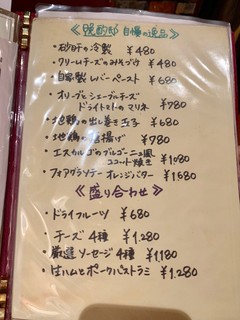 ≪晩酌邸 自慢の逸品≫
・砂肝の冷製 ¥480
・クリームチーズのみそづけ ¥480
・自家製レバーペースト ¥680
・オリーブとシェーブルチーズ
ドライトマトのマリネ ¥780
・地鶏の出し巻き玉子 ¥680
・地鶏の 揚げ ¥780
・エスカルゴのブルゴーニュ風
ココット焼き ¥1080
・フォアグラソテー オレンジバター ¥1580
≪盛り合わせ≫
・ドライフルーツ ¥680
・チーズ 4種 ¥1,280
・厳選ソーセージ 4種 ¥1,180
・生ハムとポークパストラミ ¥1,280